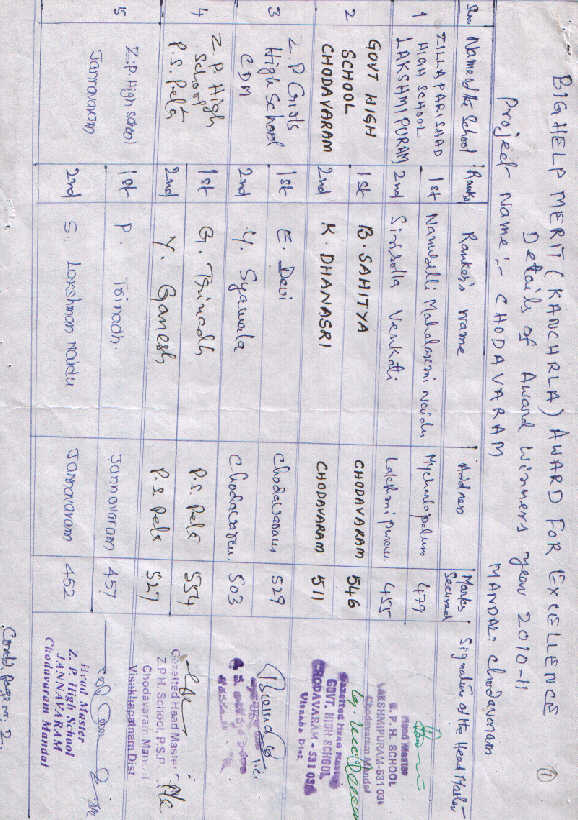 BIGHELP MERIT (KANCHRLA) AWARD FOR EXCELLENCE
①
Details of Award Winners year 2010-11
Project Name :- CHODAVARAM MANDAL: Chodavaram
Name of the School Ranks Ranker's name Address Marks Secured Signature of the Head Master
1 ZILLA PARISHAD HIGH SCHOOL LAKSHMIPURAM
1st Mahalaxmi naidu 479
2nd Venkati Lakshmipuram 455
Head Master
Z. P. H. SCHOOL
LAKSHMIPURAM-531 036
Chodavaram Mandal
2 GOVT HIGH SCHOOL CHODAVARAM
1st B. SAHITYA CHODAVARAM 546
2nd K. DHANASRI CHODAVARAM 511
Gazetted Head Master
GOVT. HIGH SCHOOL
CHODAVARAM - 531 036
Visakha Dist.
3 Z. P Girls High School CDM
1st E Devi Chodavaram 529
2nd Y. Syamala Chodavaram 503
4 Z. P. High School P.S. Peta
1st G. Trinadh P.S. Peta 554
2nd Y. Ganesh P.S. Peta 527
Gazetted Head Master
Z P H School, P.S.P
Chodavaram Mandal
Visakhapatnam Dist
5 Z.P. High School Jannavaram
1st P. Trinadh. Jannavaram 457
2nd S. Lakshman Naidu Jannavaram 452
Head Master
Z. P. High School
JANNAVARAM
Chodavaram Mandal
Contd. page no. 2..